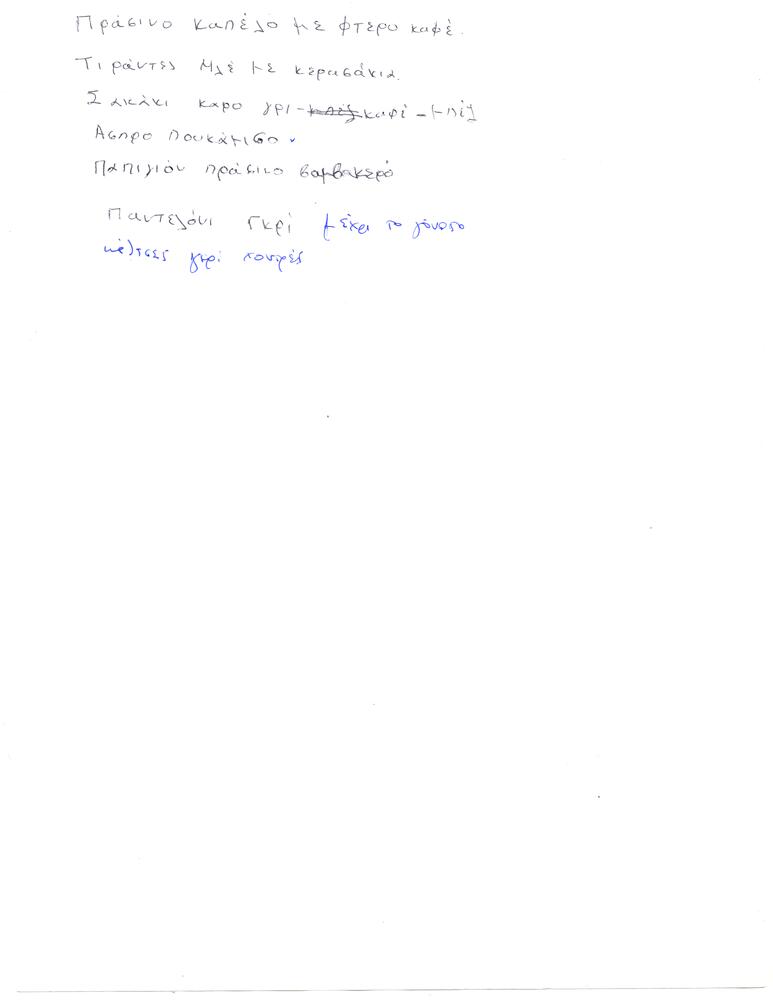 Πράσινο καπέλο με φτερό καφέ.
Τιράντες μλέ με κερασάκια.
Σακάκι καρο γρι-μπεζ καφέ - μπεζ
Ασπρο πουκάμισο
Παπιγιόν πράσινο βαμβακερό
Παντελόνι γκρί μέχρι το γόνατο
κάλτσες γκρί χοντρές